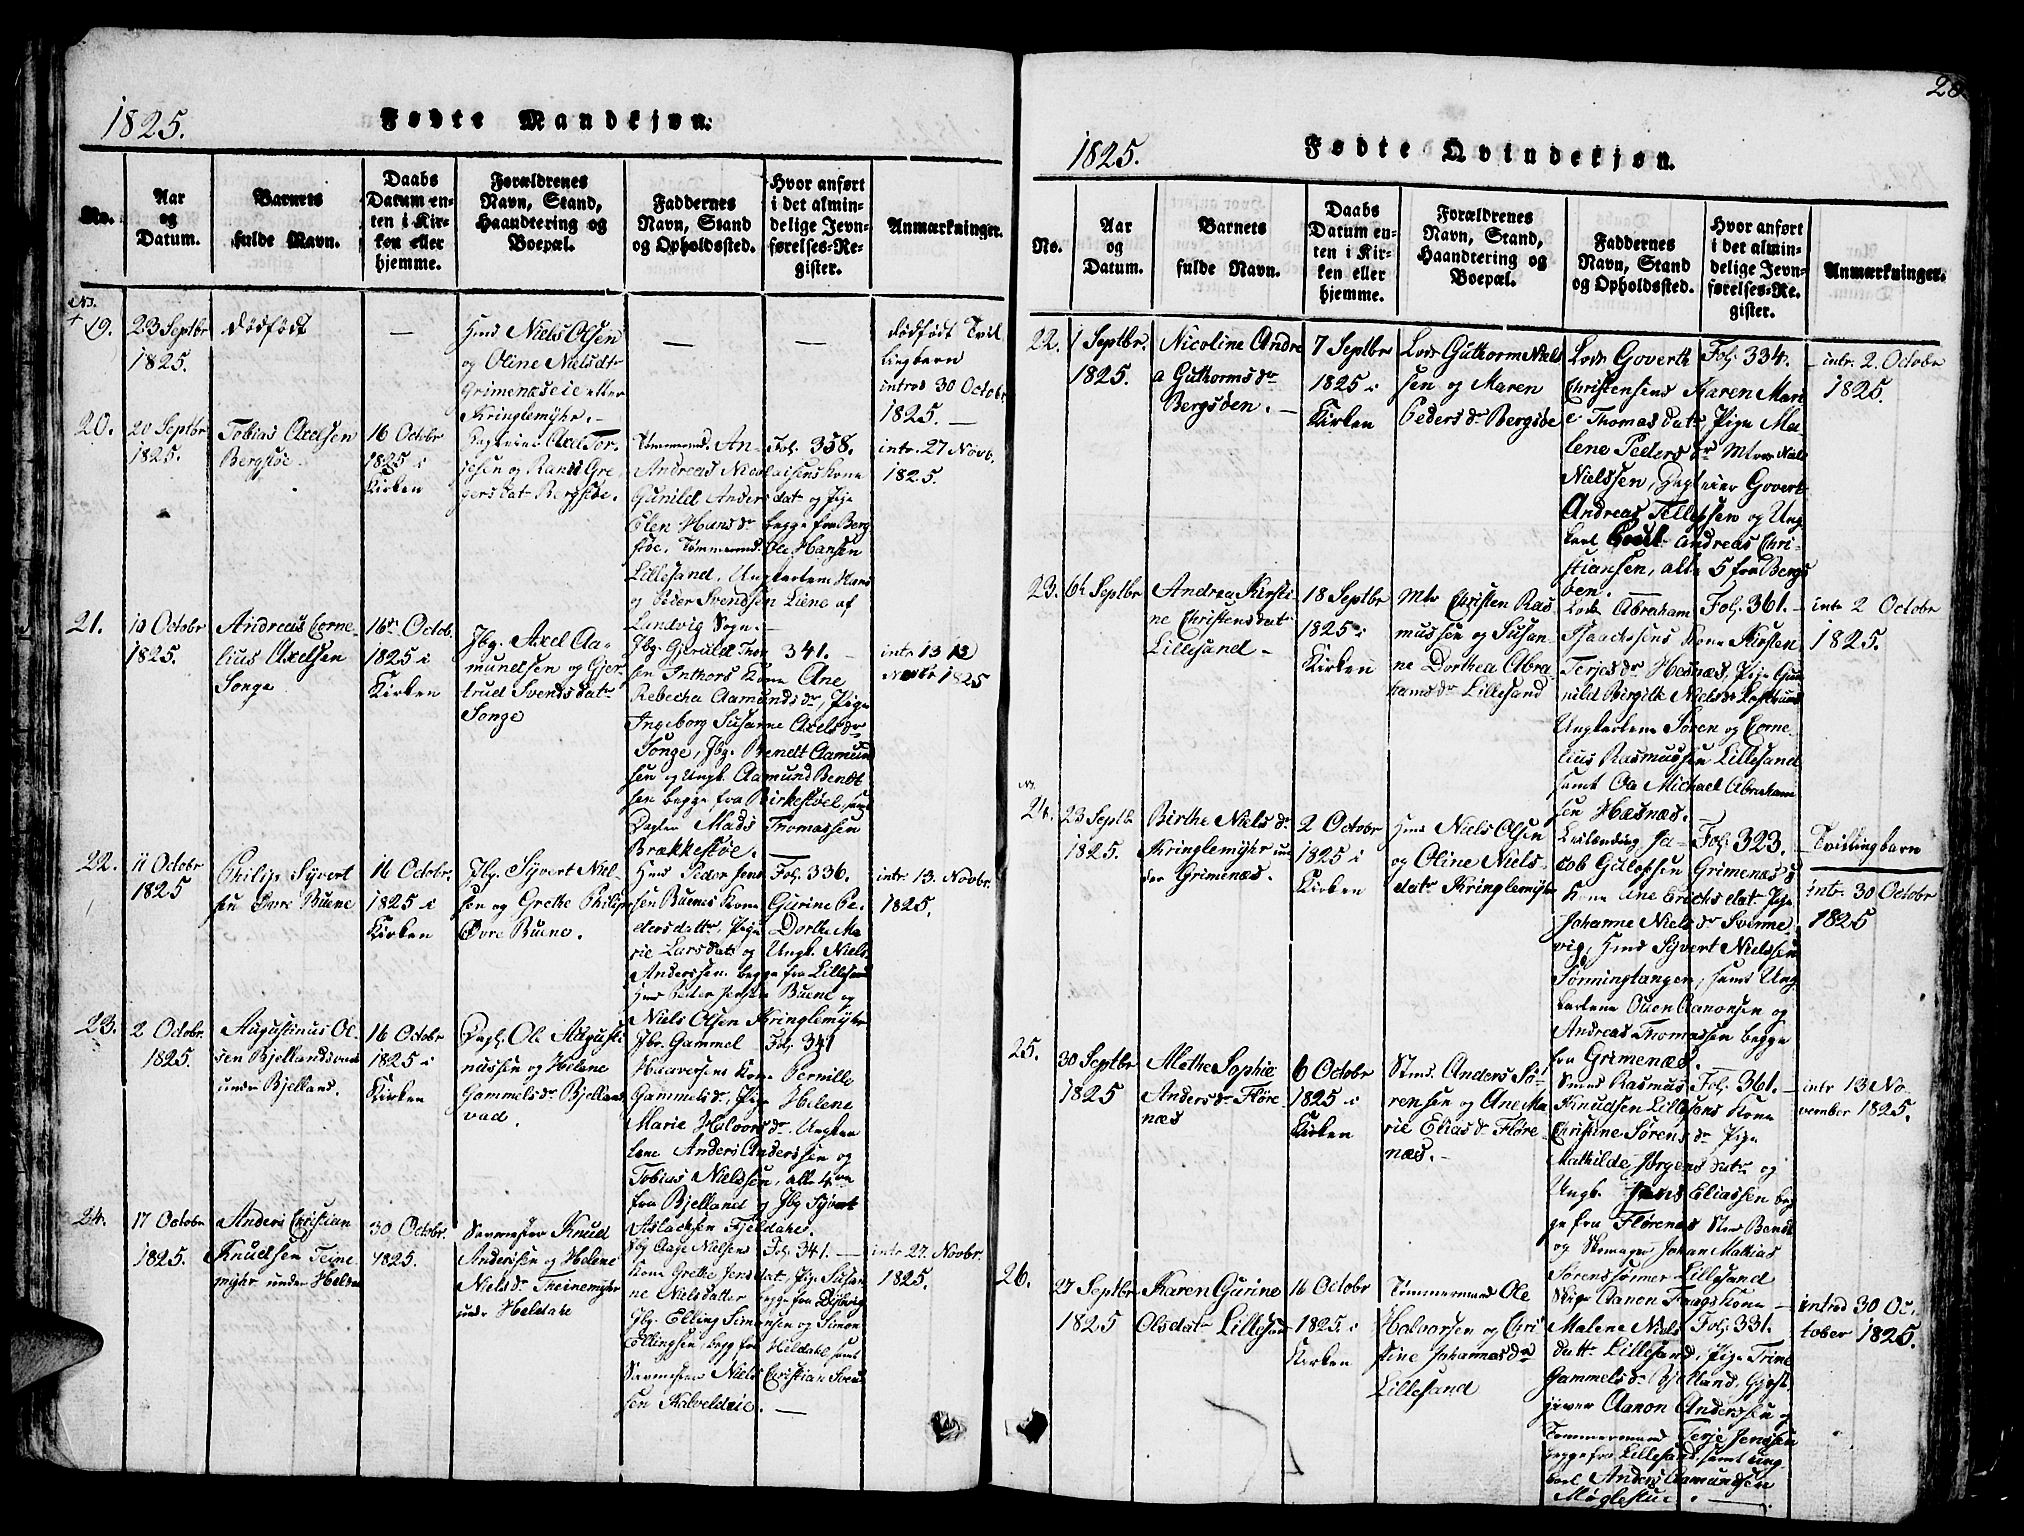 1825.
Fødte Mandkjøn.
No.
Aar
og
Datum.
Barnets
fulde Navn.
Daabs
Datum en-
ten i Kir-
ken eller
hjemme.
Forældrenes
Navn, Stand,
Haandtering og
Boepæl.
Faddernes
Navn, Stand
og Opholdssted.
Hvor anført
i det almin-
delige Jevn-
førelses-Re-
gister.
Anmærkninger.
19.
23 Septbr
1825.
dødfødt
—
Niels Olsen
og Oline Nielsdtr
Grimenæseie
Kringlemyhr.
—
—
dødfødt Tvil
lingbarn
introd 30 Octobr
1825.
20.
20 Septbr
1825.
Tobias Axelsen
Bergsøe.
16 Octobr
1825 i
Kirken
Axel Tor-
jesen og Randi Gre-
gersdat Bergsøe.
Tømmermd. An-
Fol. 358.
Andreas Nicolaisens Kone
Gunild Andersdat og Pige
Elen Hansdr begge fra Berg
søe, Tømmermd. Ole Hansen
Lillesand, Ungkarlene Hans
og Peder Svendsen Liene af
Landvig Sogn.
intr. 27 Novb.
1825.
21.
10 Octobr
1825.
Andreas Corne-
lius Axelsen
Songe
16 Octob.
1825 i
Kirken
Jbg. Axel Aa-
mundsen og Gjer-
trud Svendsdatr
Songe
341.
Kone Ane
Rebecha Aamundsdr, Pige
Ingeborg Susanne Axelsdr
Songe, Jbg. Bendt Aamund
sen og Ungk. Aamund Bendt
sen begge fra Birkestøel, samt
Mads Thomassen
Brækkestøe.
intr 13
Novbr 1825
22.
11 Octobr
1825
Philip Syvert
sen Øvre Buene
16 Octobr.
1825 i
Kirken
Jbg. Syvert Niel-
sen og Grethe Philip
Øvre Buene.
Peder Jens
Fol. 336.
sen Buenes Kone Gurine Pe-
dersdattr, Pige Dorthe Ma-
rie Larsdatr og Ungk. Niels
Anderssen begge fra Lillesand
Peder Jensen Buene og
Niels Olsen Kringlemyhr
intr. 13. Novbr.
1825.
23.
2 Octobr.
1825.
Augustinus Ol-
sen Bjellandsvad
under Bjelland.
16 Octobr
1825 i
Kirken
Ole Augusti
nussen og Helene
Gammelsdr Bjelland
vad.
Jbr. Gammel
Fol. 341
Haaversens Kone Pernille
Gammelsdr, Pige Helene
Marie Halvorsdr. Ungkar
lene Anders Anderssen og
Tobias Nielssen, alle 4re
fra Bjelland og Jbg Syvert
Aslachsen Fjeldahl.
24.
17 Octobr
1825.
Anders Christian
Knudsen Teine
myhr under Heldal
30 Octobr.
1825.
Knud
Anderssen og Helene
Nielsdr. Theinemyhr
under Heldale
Jbg Aage Nielsens Fol. 341.
Kone Grethe Jensdat, Pige Susan
ne Nielsdatter begge fra
Jbg. Elling Simonsen og Simon
Ellingsen, begge fra Heldahl samt
Niels Christian Svend
sen Kalveldeie.
intr 27. Novbr.
1825.
28
1825.
Fødte Qvindekjøn.
No.
Aar
og
Datum.
Barnets
fulde Navn.
Daabs
Datum en-
ten i Kir-
ken eller
hjemme.
Forældrenes
Navn, Stand,
Haandtering og
Boepæl.
Faddernes
Navn, Stand
og Opholdssted.
Hvor anført
i det almin-
delige Jevn-
førelses-Re-
gister.
Anmærkninger.
22.
1 Septbr.
1825.
Nicoline Andre
a Guthormsdr
Bergsøen.
7 Septbr
1825 i
Kirken
Lods Guthorm Niels
sen og Maren
Pedersdr Bergsøe
Lods Goverth
Fol. 334.
Christensens Karen Mari
e Thomasdatr Pige Ma-
lene Pedersdr Mtrs Niels
Nielssen, Govert
Andreas Tellefsen og Ung
karl Andreas Chri-
stiansen, alle 5 fra Bergs
øen.
intr. 2 Octobr
1825.
23.
6te Septbr
Andrea Kirsti-
ne Christensdat
Lillesand
18 Septbr
1825 i
Kirken
Mtr Christen Ras
mussen og Susan-
ne Dorthea Abra
hamsdr Lillesand
Lods Abraham
Fol. 361.
Isaachsens Kone Kirsten
Terjesdr Hesnæs, Pige Gu
nild Birgith Nielsdr
Ungkarlene Søren og Corne-
lius Rasmussen Lillesand
samt Ole Michael Abraham
sen Hæsnæs.
intr 2 Octobr
1825.
24.
23 Septb.
1825.
Birthe Nielsdr
Kringlemyhr un
der Grimenæs.
2 Octobr
1825 i
Kirken
Niels Olsen
og Oline Niels-
datr Kringlemyhr
Ja-
Fol. 323.
cob Gulofsen Grimenæs
Kone Ane Erichsdat. Pige
Johanne Nielsdr Svinne-
vig, Syvert Nielssen
Sønningtangen, samt Ung
karlene Ouen Aanonsen og
Andreas Thomassen begge
fra Grimenæs.
Tvillingbarn
intr. 30 Octobr
1825
25.
30 Septbr
1825
Methe Sophie
Andersdr Fløre-
næs
6 Octobr
1825 i
Kirken
Anders Sø-
rensen og Ane Ma-
rie Eliasdr Fløre-
næs.
Rasmus Fol. 361.
Knudsen Lillesands Kone
Christine Sørensdr Pige
Mathilde Jørgensdatr og
Ungk. Jens Eliassen beg
ge fra Flørenæs Bendt
og Skomager Johan Mathias
Sørenssønner Lillesand
intr 13 No
vember 1825.
26.
27 Septbr
1825
Karen Gurine
Olsdatr Lillesan
16 Octobr
1825. i
Kirken
Tømmermand Ole
Halvorsen og Chri
stine Johannesdr
Lillesand
Aanon Kone
Malene Niels Fol. 331.
datt. Lillesand, Pige Trine
Gammelsdr Bjelland, Gjest
giver Aanon Anderssen og
Tømmermand Terje Jenssen
begge fra Lillesand, samt Ung
karl Anders Aamundsen
Møglestue.
introd 30 Oc-
tober 1825.